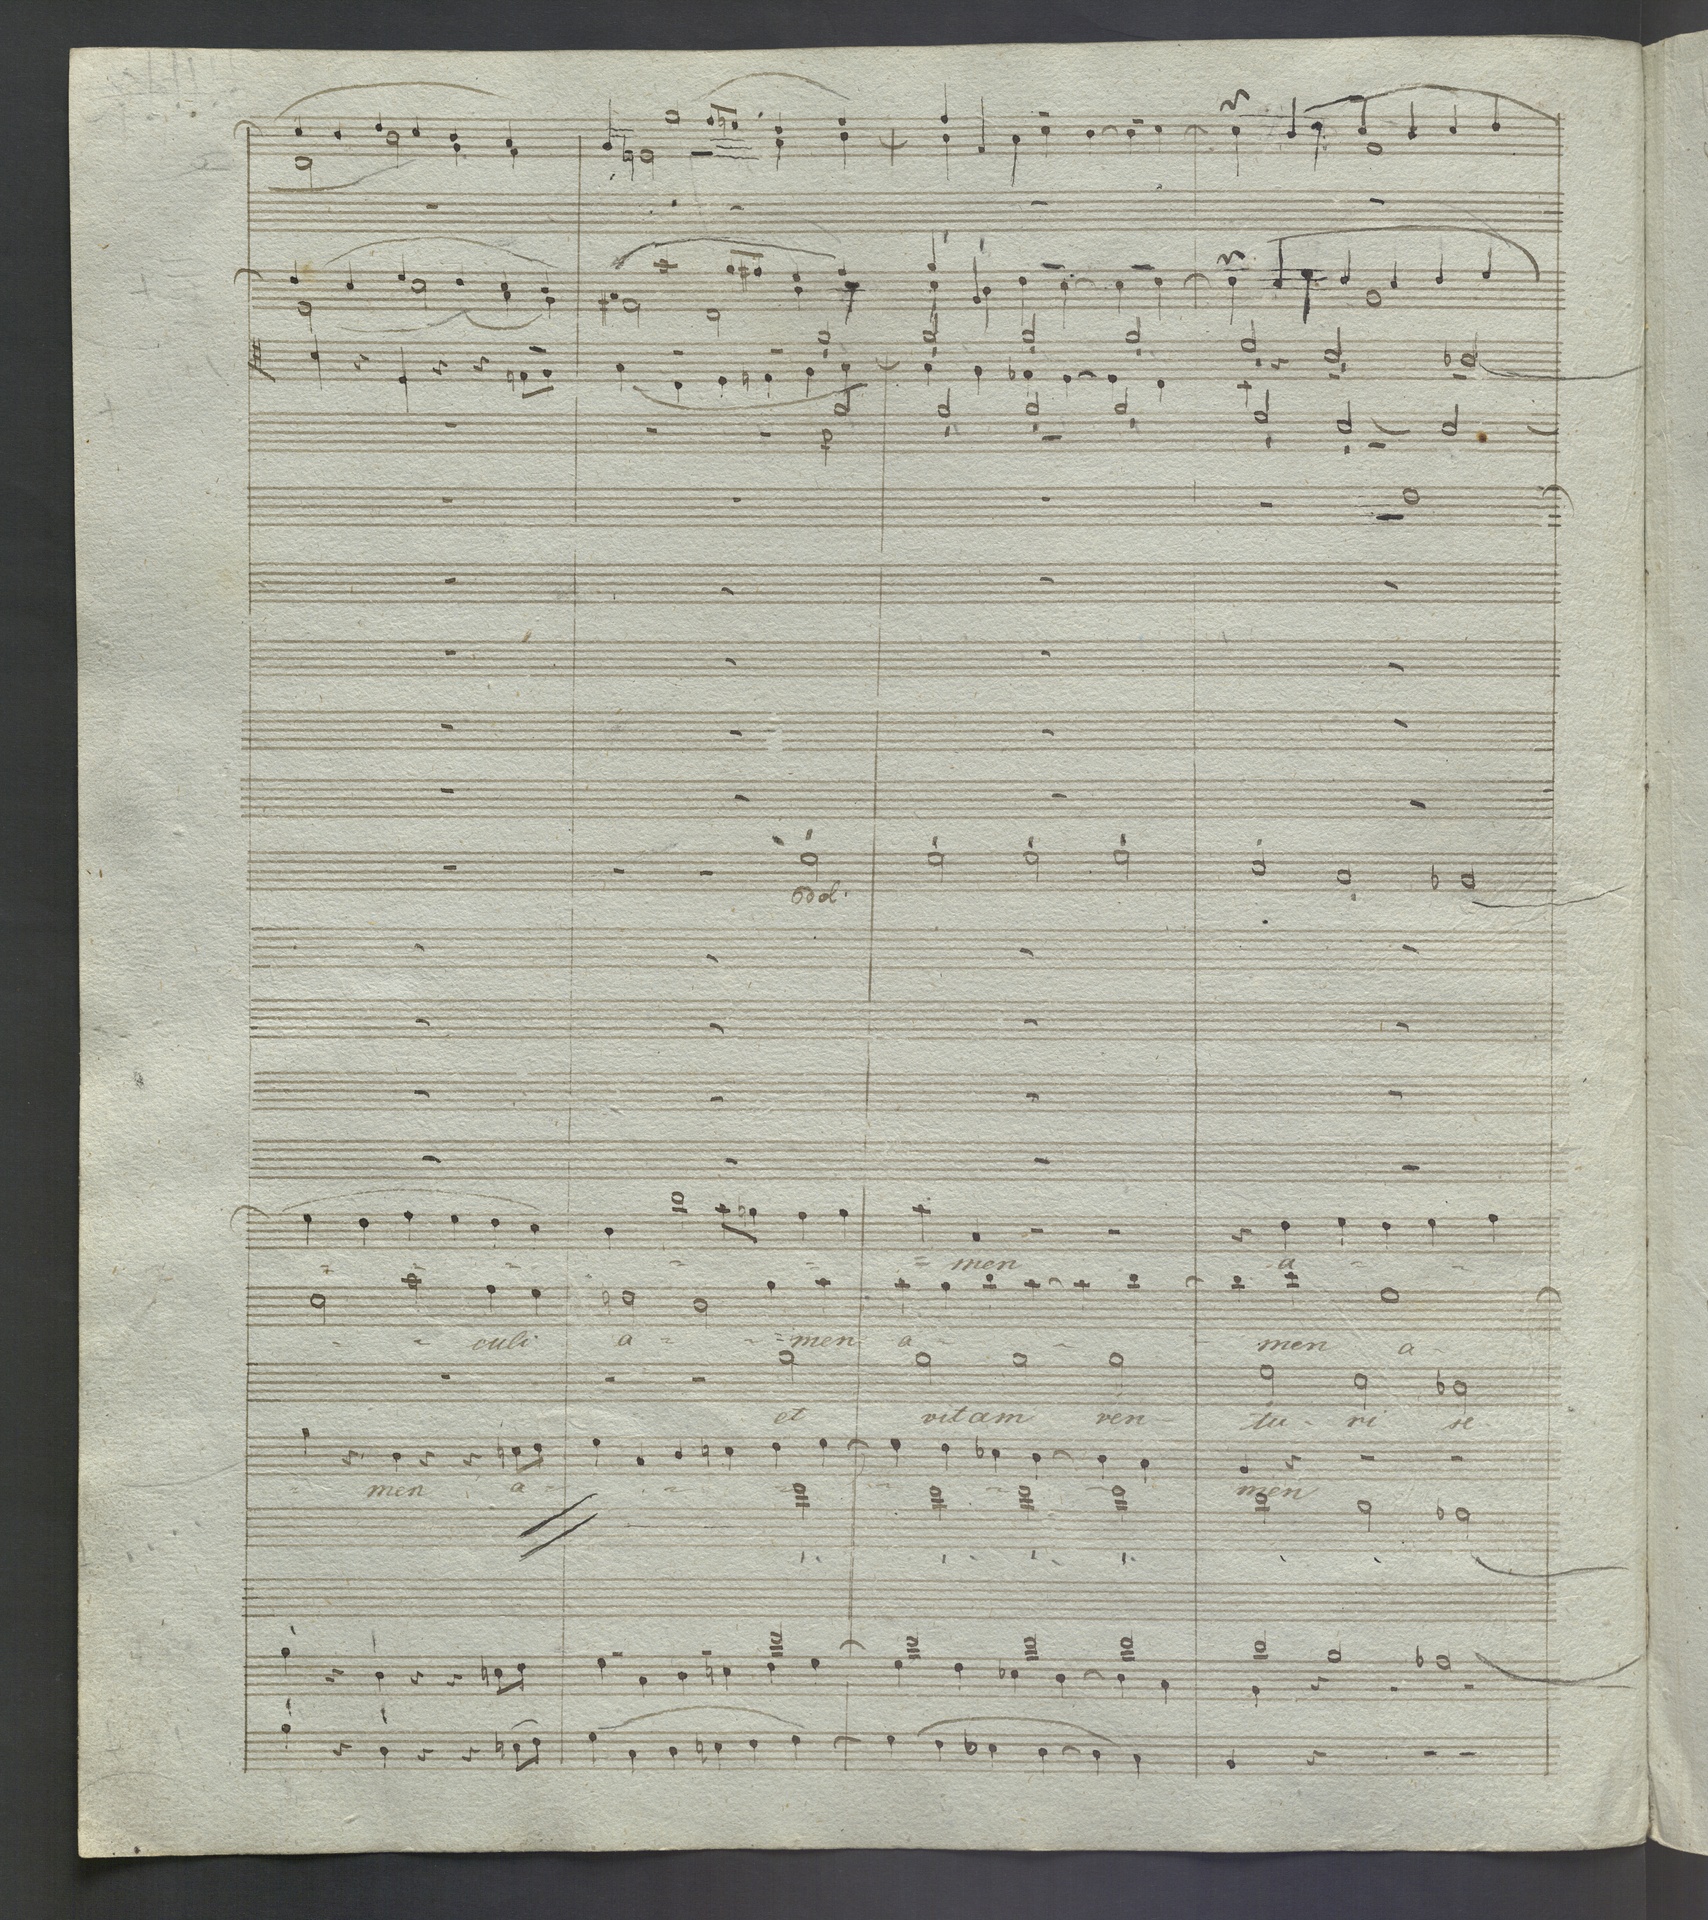 men a
culi a men a men a
et vitam ven tu ri se
men a men